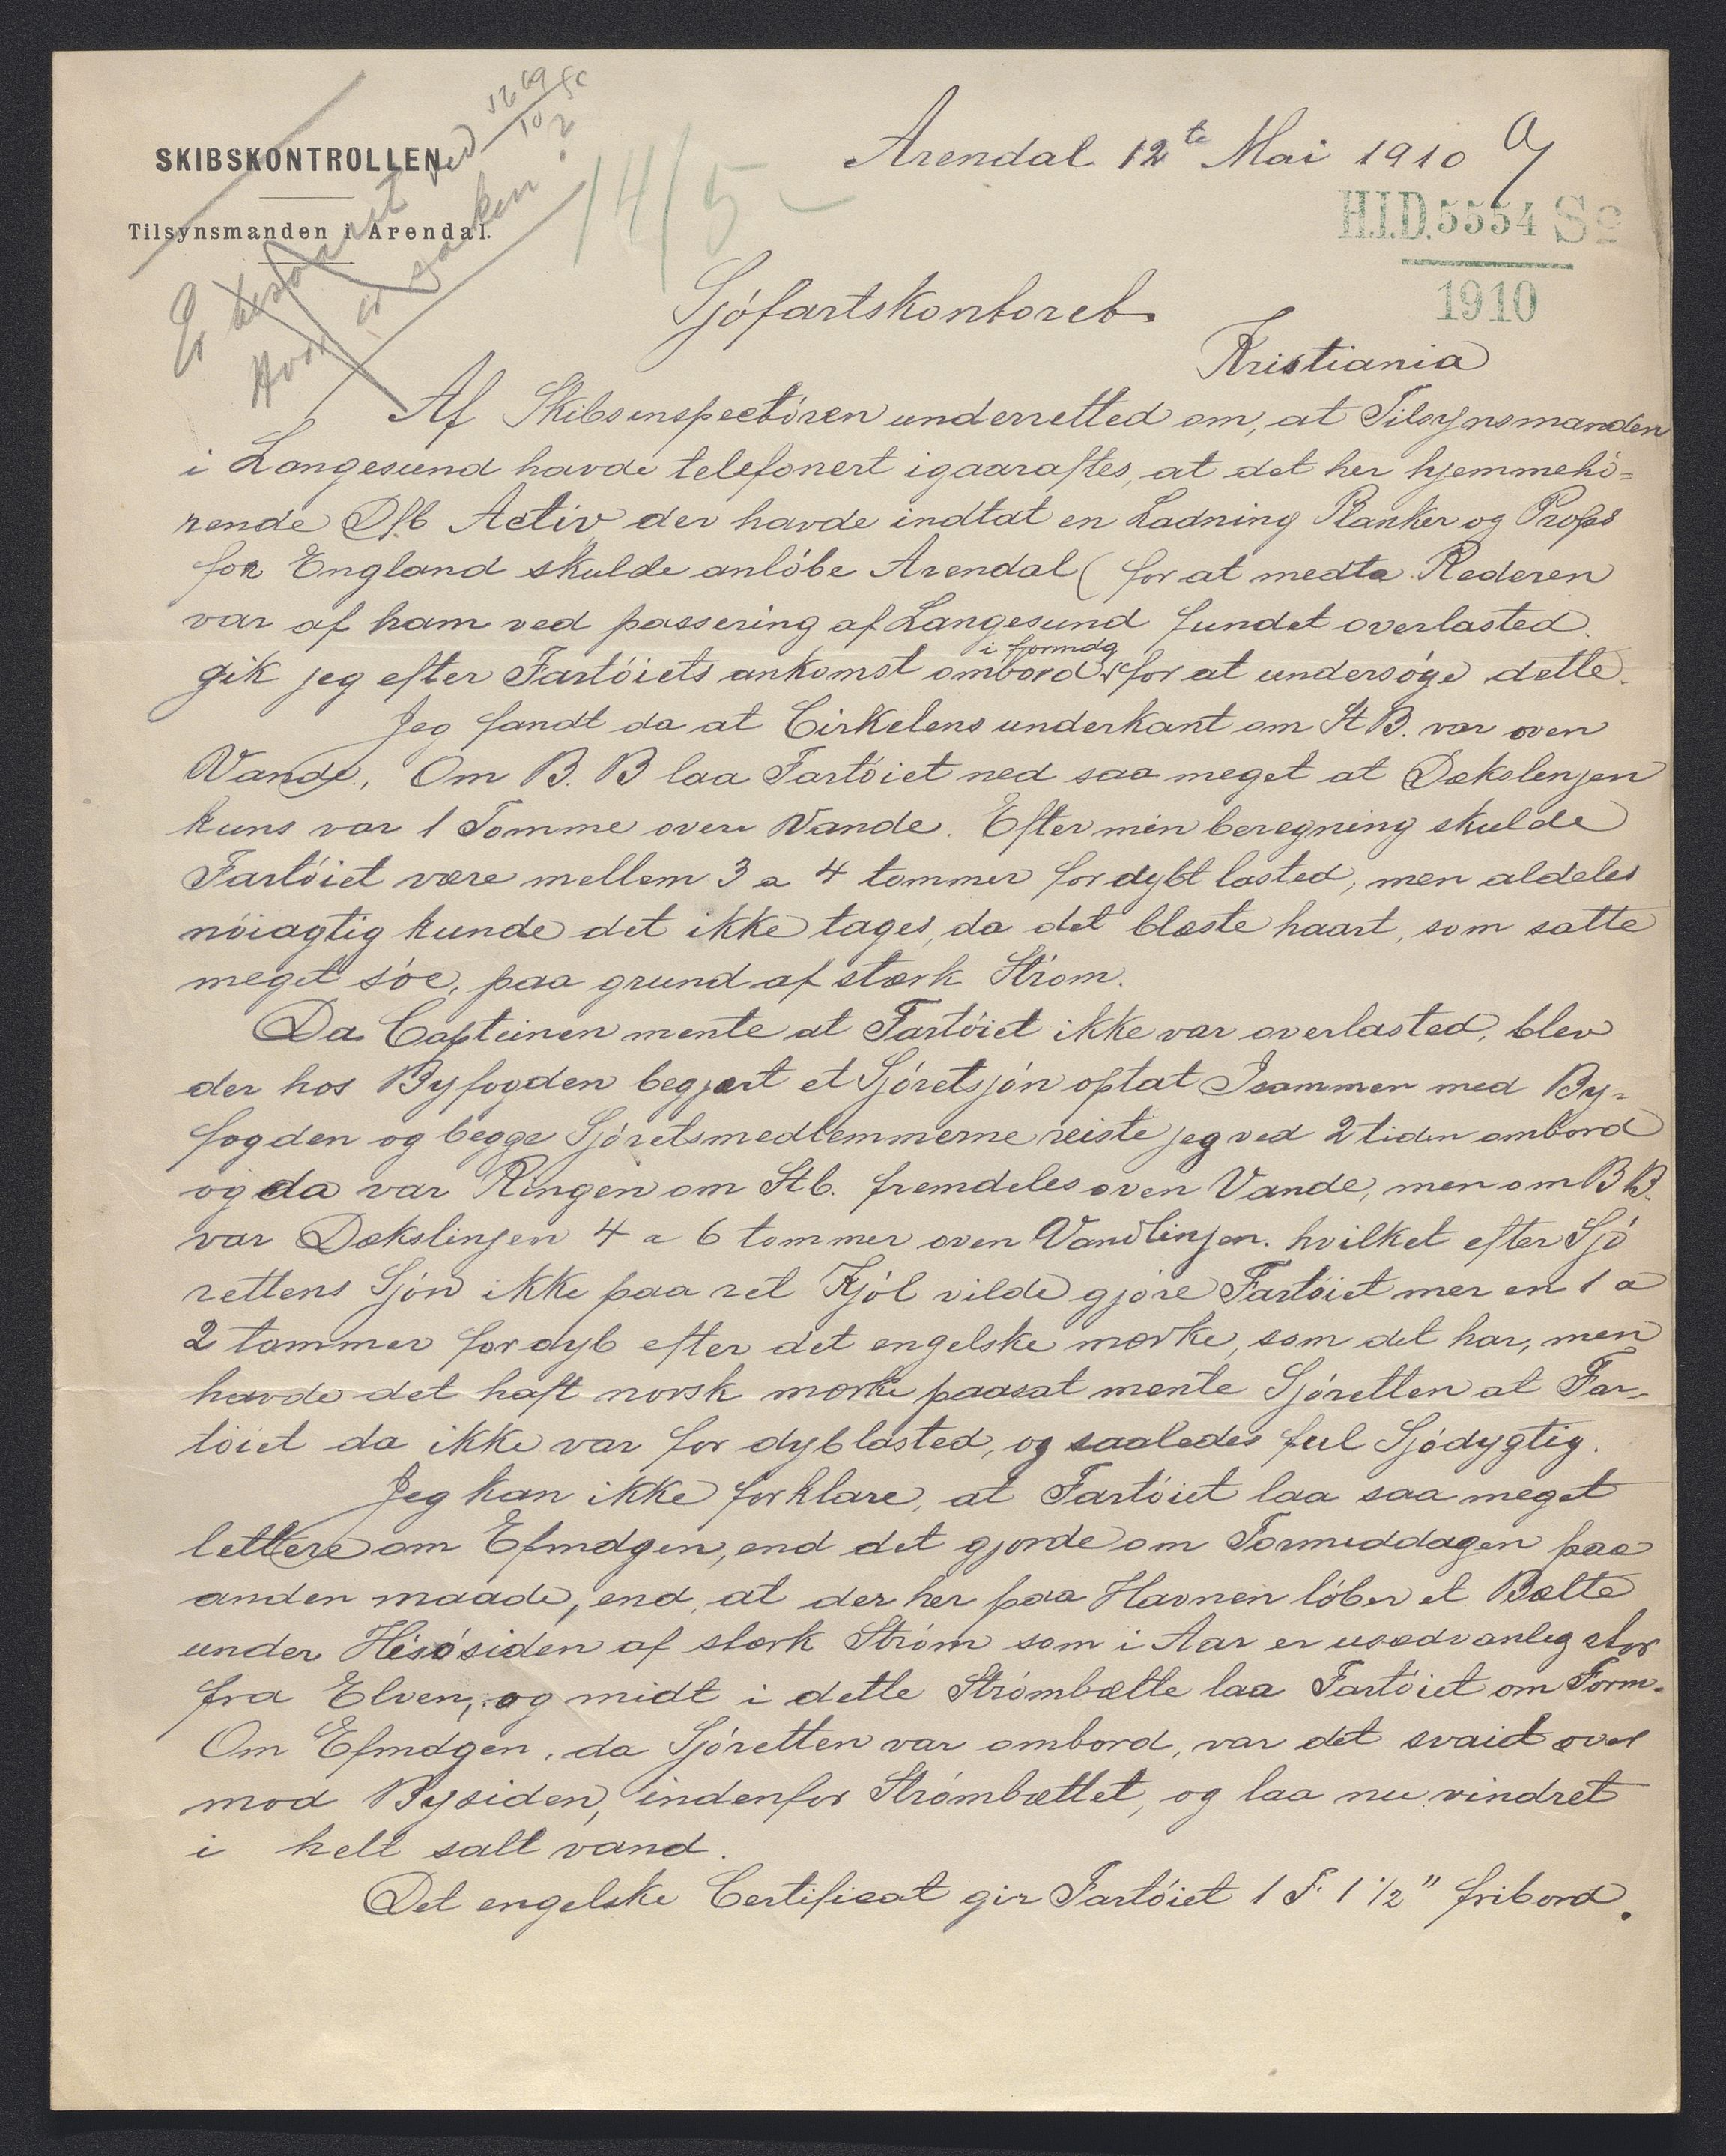 SKIBSKONTROLLEN
Tilsynsmanden i Arendal.
Er besvaret ved
Hvor er saken?
14/5
Arendal 12te Mai 1910
H.I.D. 5554 Sø
1910
Sjöfartskontoret
Kristiania
Af Skibsinspectören underretted om, at Tilsynsmanden
i Langesund havde telefonert igaaraftes, at det her hjemmehö=
rende D/b Activ der havde indtat en Ladning Planker og Props
for England skulde anlöbe Arendal (for at medta Rederen
var af ham ved passering af Langesund fundet overlasted.
gik jeg efter Fartöiets ankomst ombord i formdg for at undersöge dette.
Jeg fandt da at Cirkelens underkant om St B. var oven
Vande. Om B. B laa Fartöiet ned saa meget at Dækslenjen
kuns var 1 Tomme over Vande. Efter min beregning skulde
Fartöiet være mellem 3 a 4 tommer for dybt lasted, men aldeles
nöiagtig kunde det ikke tages, da det blæste haart, som satte
meget söe, paa grund af stærk Ström.
Da Capteinen mente at Fartöiet ikke var overlasted, blev
der hos Byfogden begjært et Sjöretsjön optat Isammen med By=
fogden og begge Sjöretsmedlemmerne reiste jeg ved 2 tiden ombord
og da var Ringen om Stb. fremdeles oven Vande, men om B B.
var Dækslinjen 4 a 6 tommer oven Vandlinjen. hvilket efter Sjö
rettens Sjön ikke paa ret Kjöl vilde gjöre Fartöiet mer en 1 a
2 tommer for dyb efter det engelske mærke, som det har, men
havde det haft norsk mærke paasat mente Sjöretten at Far-
töiet da ikke var for dyblasted, og saaledes ful Sjödygtig.
Jeg kan ikke forklare, at Fartöiet laa saa meget
lettere om Efmdgen, end det gjorde om Formiddagen paa
anden maade, end, at der her paa Havnen löber et Bælte
under Hisösiden af stærk Ström som i Aar er usædvanlig stor
fra Elven, og midt i dette Strömbælte laa Fartöiet om Form.
Om Efmdgen, da Sjöretten var ombord, var det svaiet over
mod Bysiden, indenfor Strömbæltet, og laa nu vindret
i helt salt vand.
Det engelske Certificat gir Fartöiet 1 F. 1 1/2" fribord.